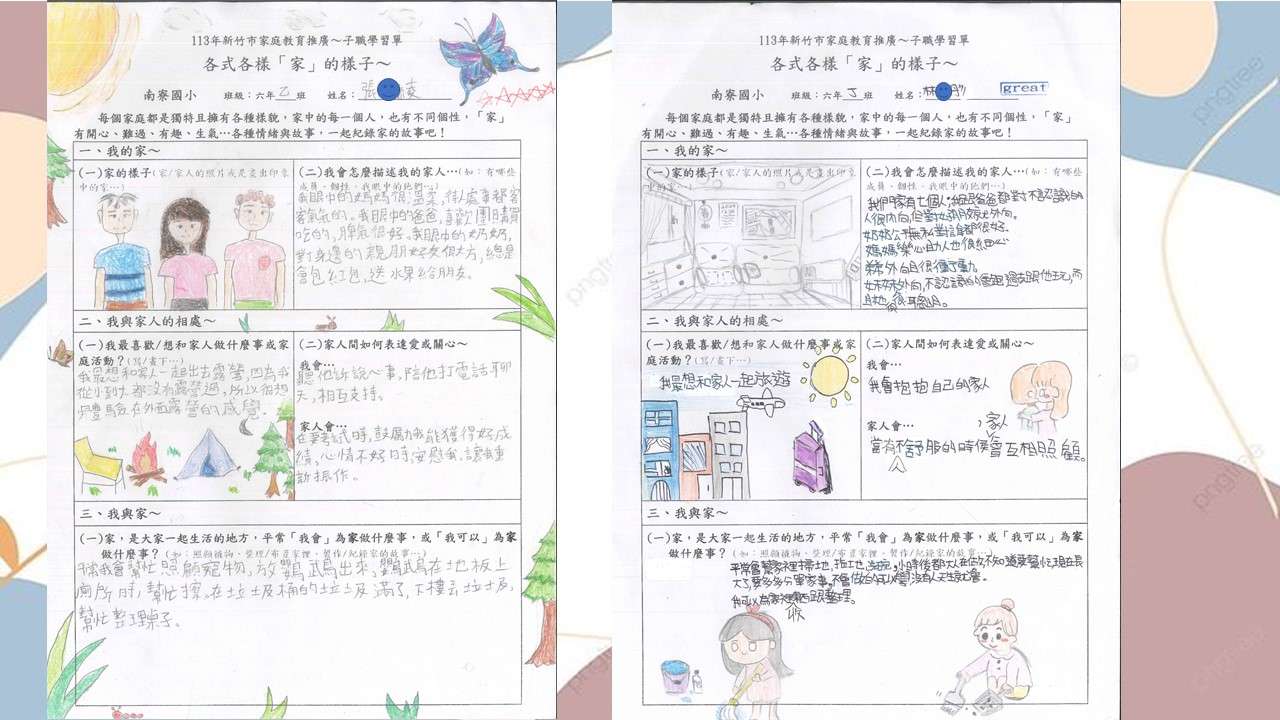 113年新竹市家庭教育推廣～子職學習單
各式各樣「家」的樣子～
南寮國小 班級：六年乙 姓名：張
每個家庭都是獨特且擁有各種樣貌，家中的每一個人，也有不同個性，「家」
有開心、難過、有趣、生氣…各種情緒與故事，一起紀錄家的故事吧！
一、我的家～
(一)家的樣子(家/家人的照片或是畫出印象
中的家…)
(二)我會怎麼描述我的家人…(如：有哪些
成員、個性、我眼中的他們…)
我眼中的媽媽很溫柔，待人處事都客
客氣氣的。我眼中的爸爸，喜歡團購買
吃的，脾氣很好。我眼中的奶奶，
對身邊的親朋好友很大方，總是
會包紅包，送水果給朋友。
二、我與家人的相處～
(一)我最喜歡/想和家人做什麼事或家
庭活動？(寫/畫下…)
我最想和家人一起出去露營，因為我
從小到大都沒有露營過，所以很想
體驗在外面露營的感覺。
(二)家人間如何表達愛或關心～
我會…
聽他訴說心事，陪他打電話聊
天，相互支持。
家人會…
在考試時，鼓勵我能獲得好成
績，心情不好時安慰我，讓我重
新振作。
三、我與家～
(一)家，是大家一起生活的地方，平常「我會」為家做什麼事，或「我可以」為家
做什麼事？(如：照顧植物、整理/布置家裡、製作/紀錄家的故事…)
我會幫忙照顧寵物，放鸚鵡出來，鸚鵡在地板上
廁所時，幫忙擦。在垃圾桶的垃圾滿了，下樓丟垃圾，
幫忙整理桌子。
113年新竹市家庭教育推廣～子職學習單
各式各樣「家」的樣子～
南寮國小 班級：六年丁班 姓名：林
great
每個家庭都是獨特且擁有各種樣貌，家中的每一個人，也有不同個性，「家」
有開心、難過、有趣、生氣…各種情緒與故事，一起紀錄家的故事吧！
一、我的家～
(一)家的樣子(家/家人的照片或是畫出印象
中的家…)
(二)我會怎麼描述我的家人…(如：有哪些
成員、個性、我眼中的他們…)
我們家有七個人，爸爸都對不認識的
人很內向，但對外向。
都很好。
媽媽樂心助人也很細心
外向且很
妹妹外向，不認識的會跑過去跟他玩，而
且她很聰明。
二、我與家人的相處～
(一)我最喜歡/想和家人做什麼事或家
庭活動？(寫/畫下…)
我最想和家人一起旅遊
(二)家人間如何表達愛或關心～
我會…
我會抱抱自己的家人
家人會…
當有不舒服的時候，家人會互相照顧。
三、我與家～
(一)家，是大家一起生活的地方，平常「我會」為家做什麼事，或「我可以」為家
做什麼事？(如：照顧植物、整理/布置家裡、製作/紀錄家的故事…)
平常會幫家裡掃地、拖地、洗碗。小時候都大人在做，不知道要幫忙，現在長
大了，要多多分單家事，不會做的可以學，沒有人天生就會。
我可以為家裡做